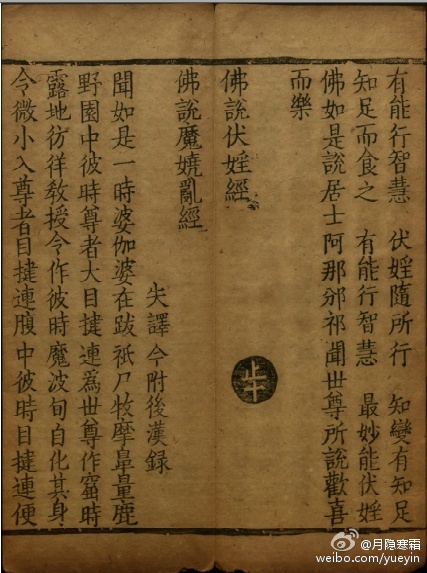 有能行智慧　伏婬隨所行　知變有知足
知足而食之　有能行智慧　最妙能伏婬
佛如是說居士阿那邠祁聞世尊所說歡喜
而樂
佛說伏婬經
止十
佛說魔嬈亂經
失譯今附後漢録
聞如是一時婆伽婆在跋祇尸牧摩鼻量鹿
野園中彼時尊者大目揵連爲世尊作窟時
露地彷徉教授令作彼時魔波旬自化其身
令微小入尊者目揵連腹中彼時目揵連便
@月隐寒霜
weibo.com/yueyin